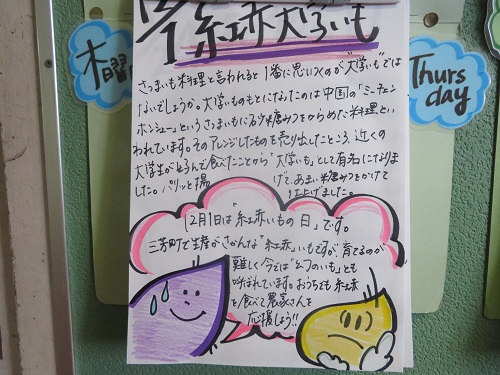 紅赤大学いも
木曜
Thurs
day
さつまいも料理と言われると1番に思いつくのが"大学いも"では
ないでしょうか。大学いものもとになったのは中国の「ミーチェン
ホンシュー」というさつまいもに砂糖みつをからめた料理とい
われています。そのアレンジしたものを売り出したところ、近くの
大学生が好んで食べたことから「大学いも」として有名になりま
した。パリッと揚げて、あまい糖みつをかけて
仕上げました。
12月1日は「紅赤いもの日」です。
三芳町で生産がさかんな「紅赤」いもですが育てるのが
難しく今では「幻のいも」とも
呼ばれています。おうちでも紅赤
を食べて農家さんを
応援しよう!!